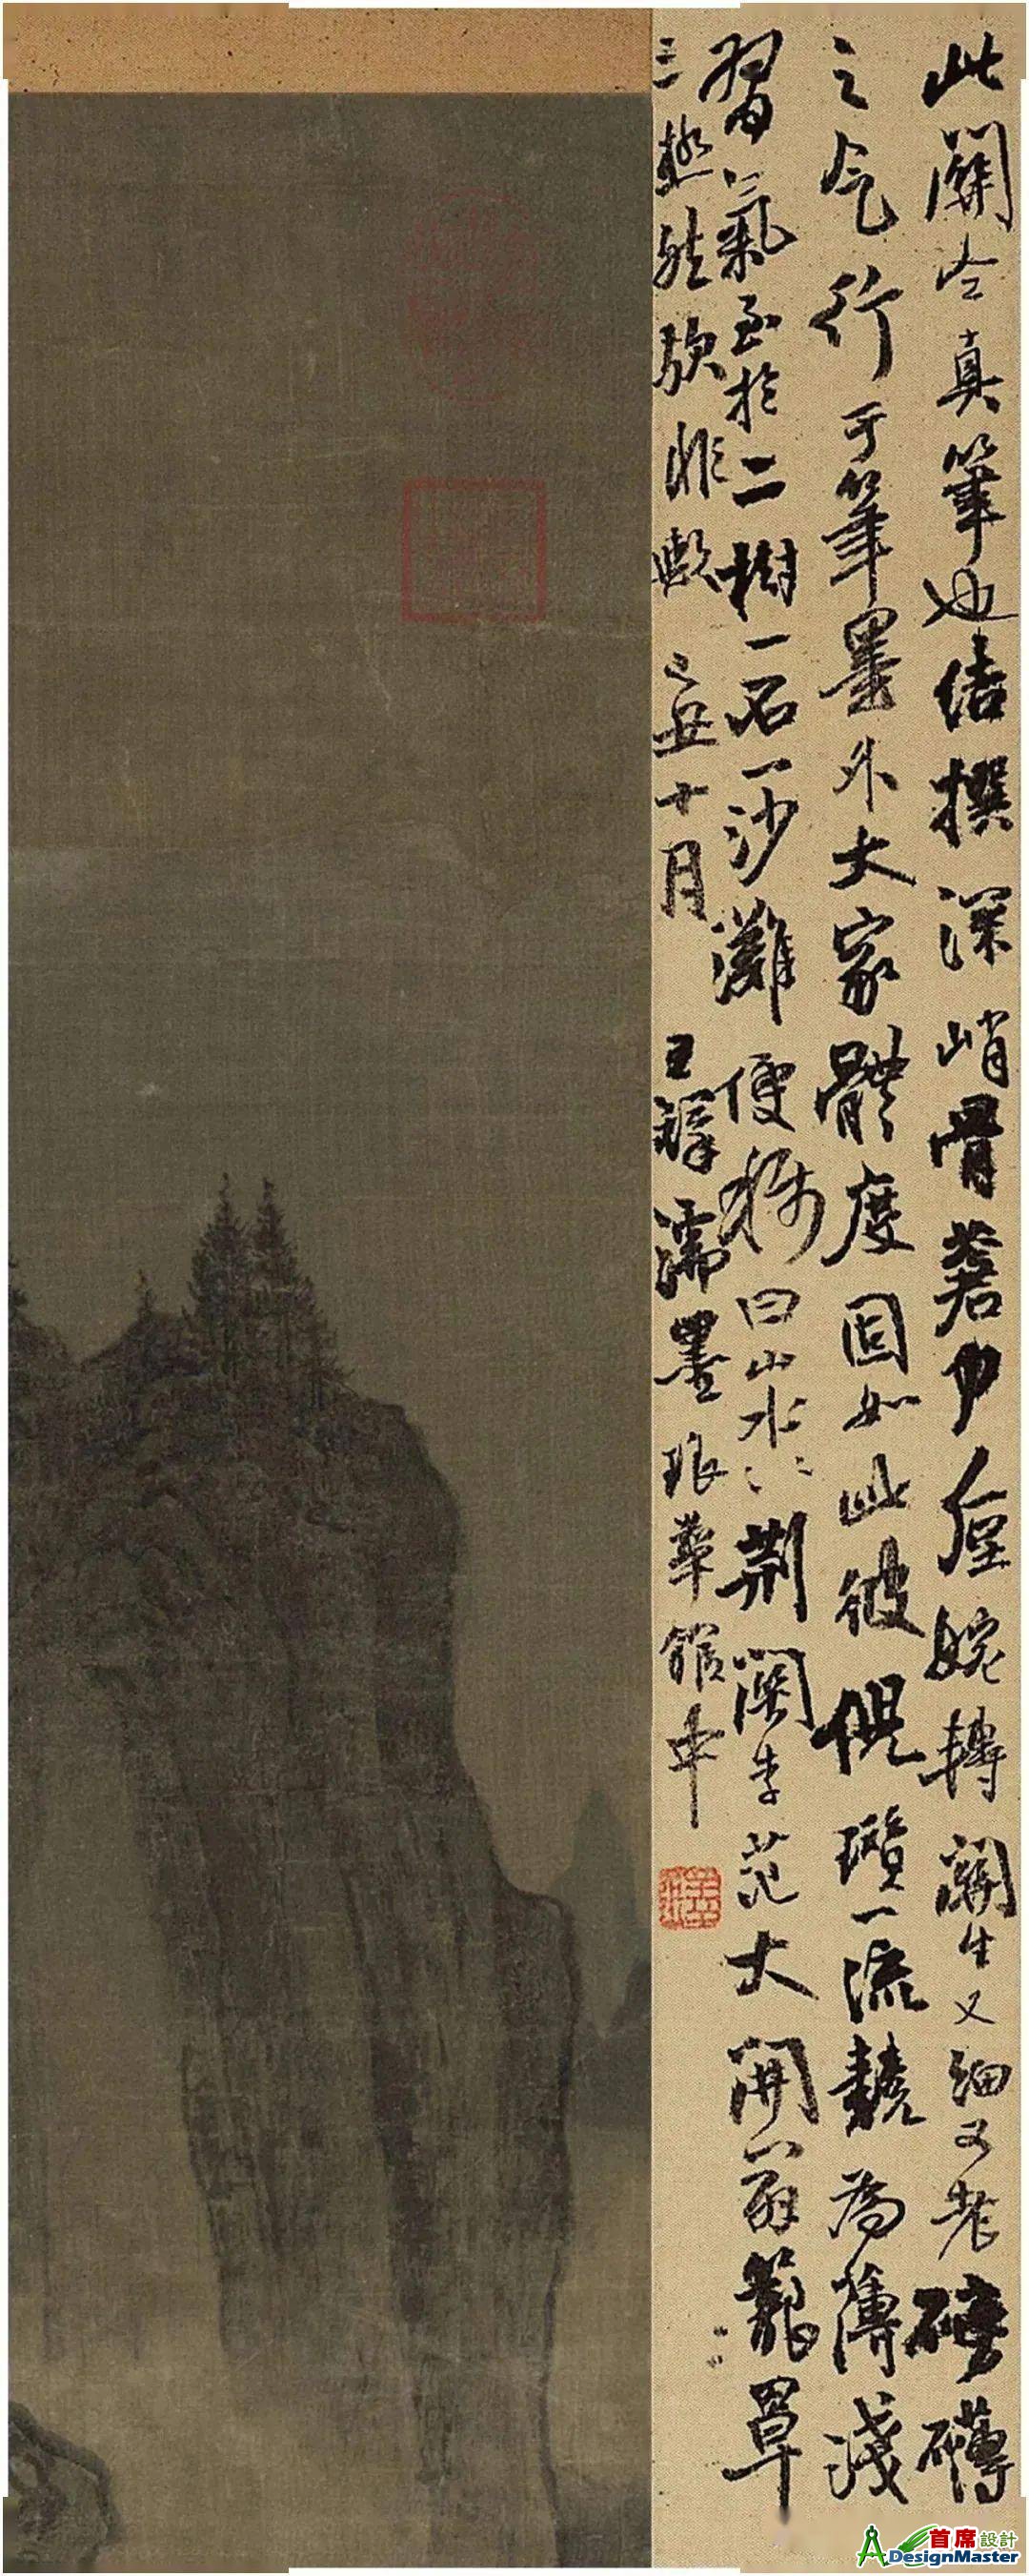 此關仝真筆也結撰深峭骨蒼力厚婉轉關生又細又老磅礴
之气行于筆墨外大家體度固如此彼倪瓚一流競為薄淺
習氣至於二樹一石一沙灘便稱曰山水〻〻荊關李范大開 籠罩
三極然歟非歟 己丑十月 王鐸濡墨琅華館中
首席設計
DesignMaster